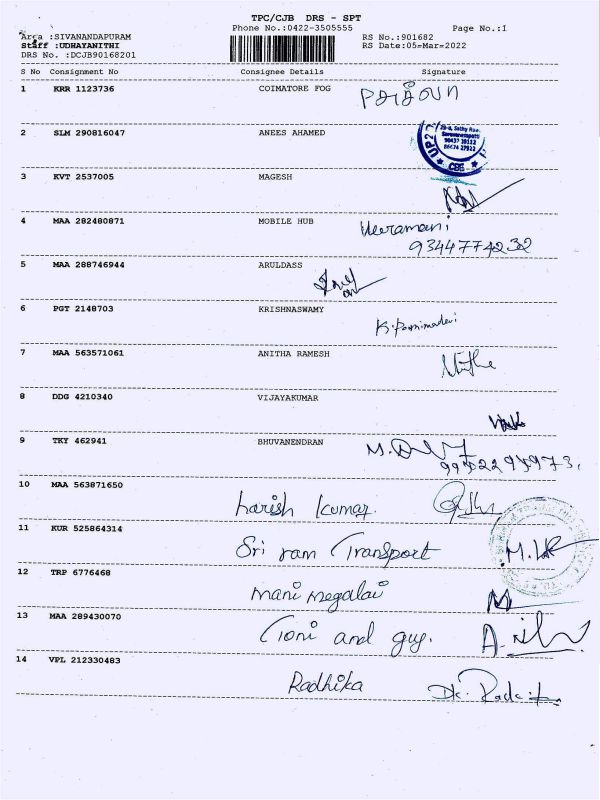 TPC/CJB DRS - SPT
Phone No.:0422-3505555 Page No.:1
Area :SIVANANDAPURAM RS No.:901682
Staff :UDHAYANITHI RS Date:05-Mar-2022
DRS No. :DCJB90168201
S No Consignment No Consignee Details Signature
1 KRR 1123736 COIMATORE FOG
2 SLM 290816047 ANEES AHAMED
CBE
3 KVT 2537005 MAGESH
4 MAA 282480871 MOBILE HUB Veeramani
9344774232
5 MAA 288746944 ARULDASS
6 PGT 2148703 KRISHNASWAMY
7 MAA 563571061 ANITHA RAMESH
8 DDG 4210340 VIJAYAKUMAR
9 TKY 462941 BHUVANENDRAN
10 MAA 563871650 harish kumar.
11 KUR 525864314 Sri ram Transport
12 TRP 6776468 mani megalai
13 MAA 289430070 Toni and guy.
14 VPL 212330483 Radhika